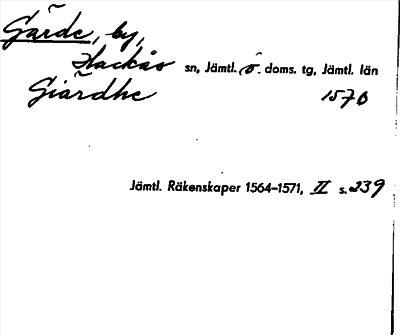 Gärde, by,
Hackås sn, Jämtl. ö. doms. tg, Jämtl. län
Giärdhe 1570
Jämtl. Räkenskaper 1564–1571, II s. 239